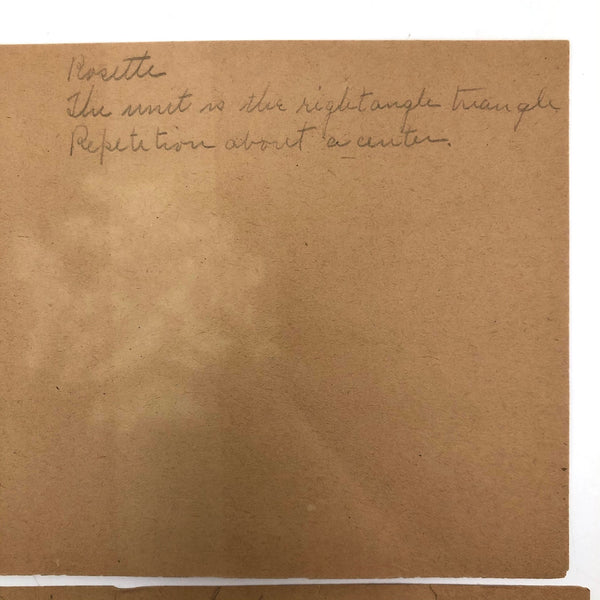 Rosette
The unit is the rightangle triangle
Repetition about a center.